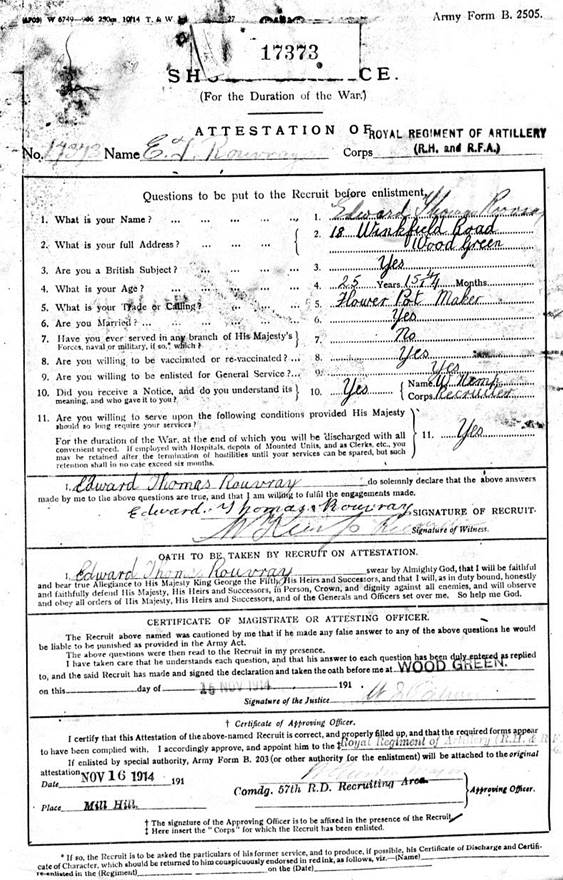 W 6749—986 250m 10/14 T. & W. 27
Army Form B. 2505.
17373
(For the Duration of the War.)
ATTESTATION OF ROYAL REGIMENT OF ARTILLERY
(R.H. and R.F.A.)
No. 17373 Name E. T. Rouvray Corps
Questions to be put to the Recruit before enlistment.
1. What is your Name? ... 1. Edward Thomas Rouvray
2. What is your full Address? ... 2. 18 Winkfield Road
Wood Green
3. Are you a British Subject? ... 3. Yes
4. What is your Age? ... 4. 25 Years Months
5. What is your Trade or Calling? ... 5. Flower Pot Maker
6. Are you Married? ... 6. Yes
7. Have you ever served in any branch of His Majesty's
Forces, naval or military, if so,* which? 7. No
8. Are you willing to be vaccinated or re-vaccinated? ... 8. Yes
9. Are you willing to be enlisted for General Service? ... 9. Yes
10. Did you receive a Notice, and do you understand its
meaning, and who gave it to you? 10. Yes Name W Kemp
Corps Recruiter
11. Are you willing to serve upon the following conditions provided His Majesty
should so long require your services?
For the duration of the War, at the end of which you will be discharged with all
convenient speed. If employed with Hospitals, depots of Mounted Units, and as Clerks, etc., you
may be retained after the termination of hostilities until your services can be spared, but such
retention shall in no case exceed six months. 11. Yes
I, Edward Thomas Rouvray do solemnly declare that the above answers
made by me to the above questions are true, and that I am willing to fulfil the engagements made.
Edward Thomas Rouvray SIGNATURE OF RECRUIT.
W Kemp Signature of Witness.
OATH TO BE TAKEN BY RECRUIT ON ATTESTATION.
I, Edward Thomas Rouvray swear by Almighty God, that I will be faithful
and bear true Allegiance to His Majesty King George the Fifth, His Heirs and Successors, and that I will, as in duty bound, honestly
and faithfully defend His Majesty, His Heirs and Successors, in Person, Crown, and dignity against all enemies, and will observe
and obey all orders of His Majesty, His Heirs and Successors, and of the Generals and Officers set over me. So help me God.
CERTIFICATE OF MAGISTRATE OR ATTESTING OFFICER.
The Recruit above named was cautioned by me that if he made any false answer to any of the above questions he would
be liable to be punished as provided in the Army Act.
The above questions were then read to the Recruit in my presence.
I have taken care that he understands each question, and that his answer to each question has been duly entered as replied
to, and the said Recruit has made and signed the declaration and taken the oath before me at WOOD GREEN.
on this day of 15 NOV 1914 191
Signature of the Justice
† Certificate of Approving Officer.
I certify that this Attestation of the above-named Recruit is correct, and properly filled up, and that the required forms appear
to have been complied with. I accordingly approve, and appoint him to the ‡Royal Regiment of Artillery (R.H. & R.F.
If enlisted by special authority, Army Form B. 203 (or other authority for the enlistment) will be attached to the original
attestation
Date NOV 16 1914 191
Comdg. 57th R.D. Recruiting Area. Approving Officer.
Place Mill Hill.
† The signature of the Approving Officer is to be affixed in the presence of the Recruit.
‡ Here insert the "Corps" for which the Recruit has been enlisted.
* If so, the Recruit is to be asked the particulars of his former service, and to produce, if possible, his Certificate of Discharge and Certifi-
cate of Character, which should be returned to him conspicuously endorsed in red ink, as follows, viz.—(Name)
re-enlisted in the (Regiment) on the (Date)